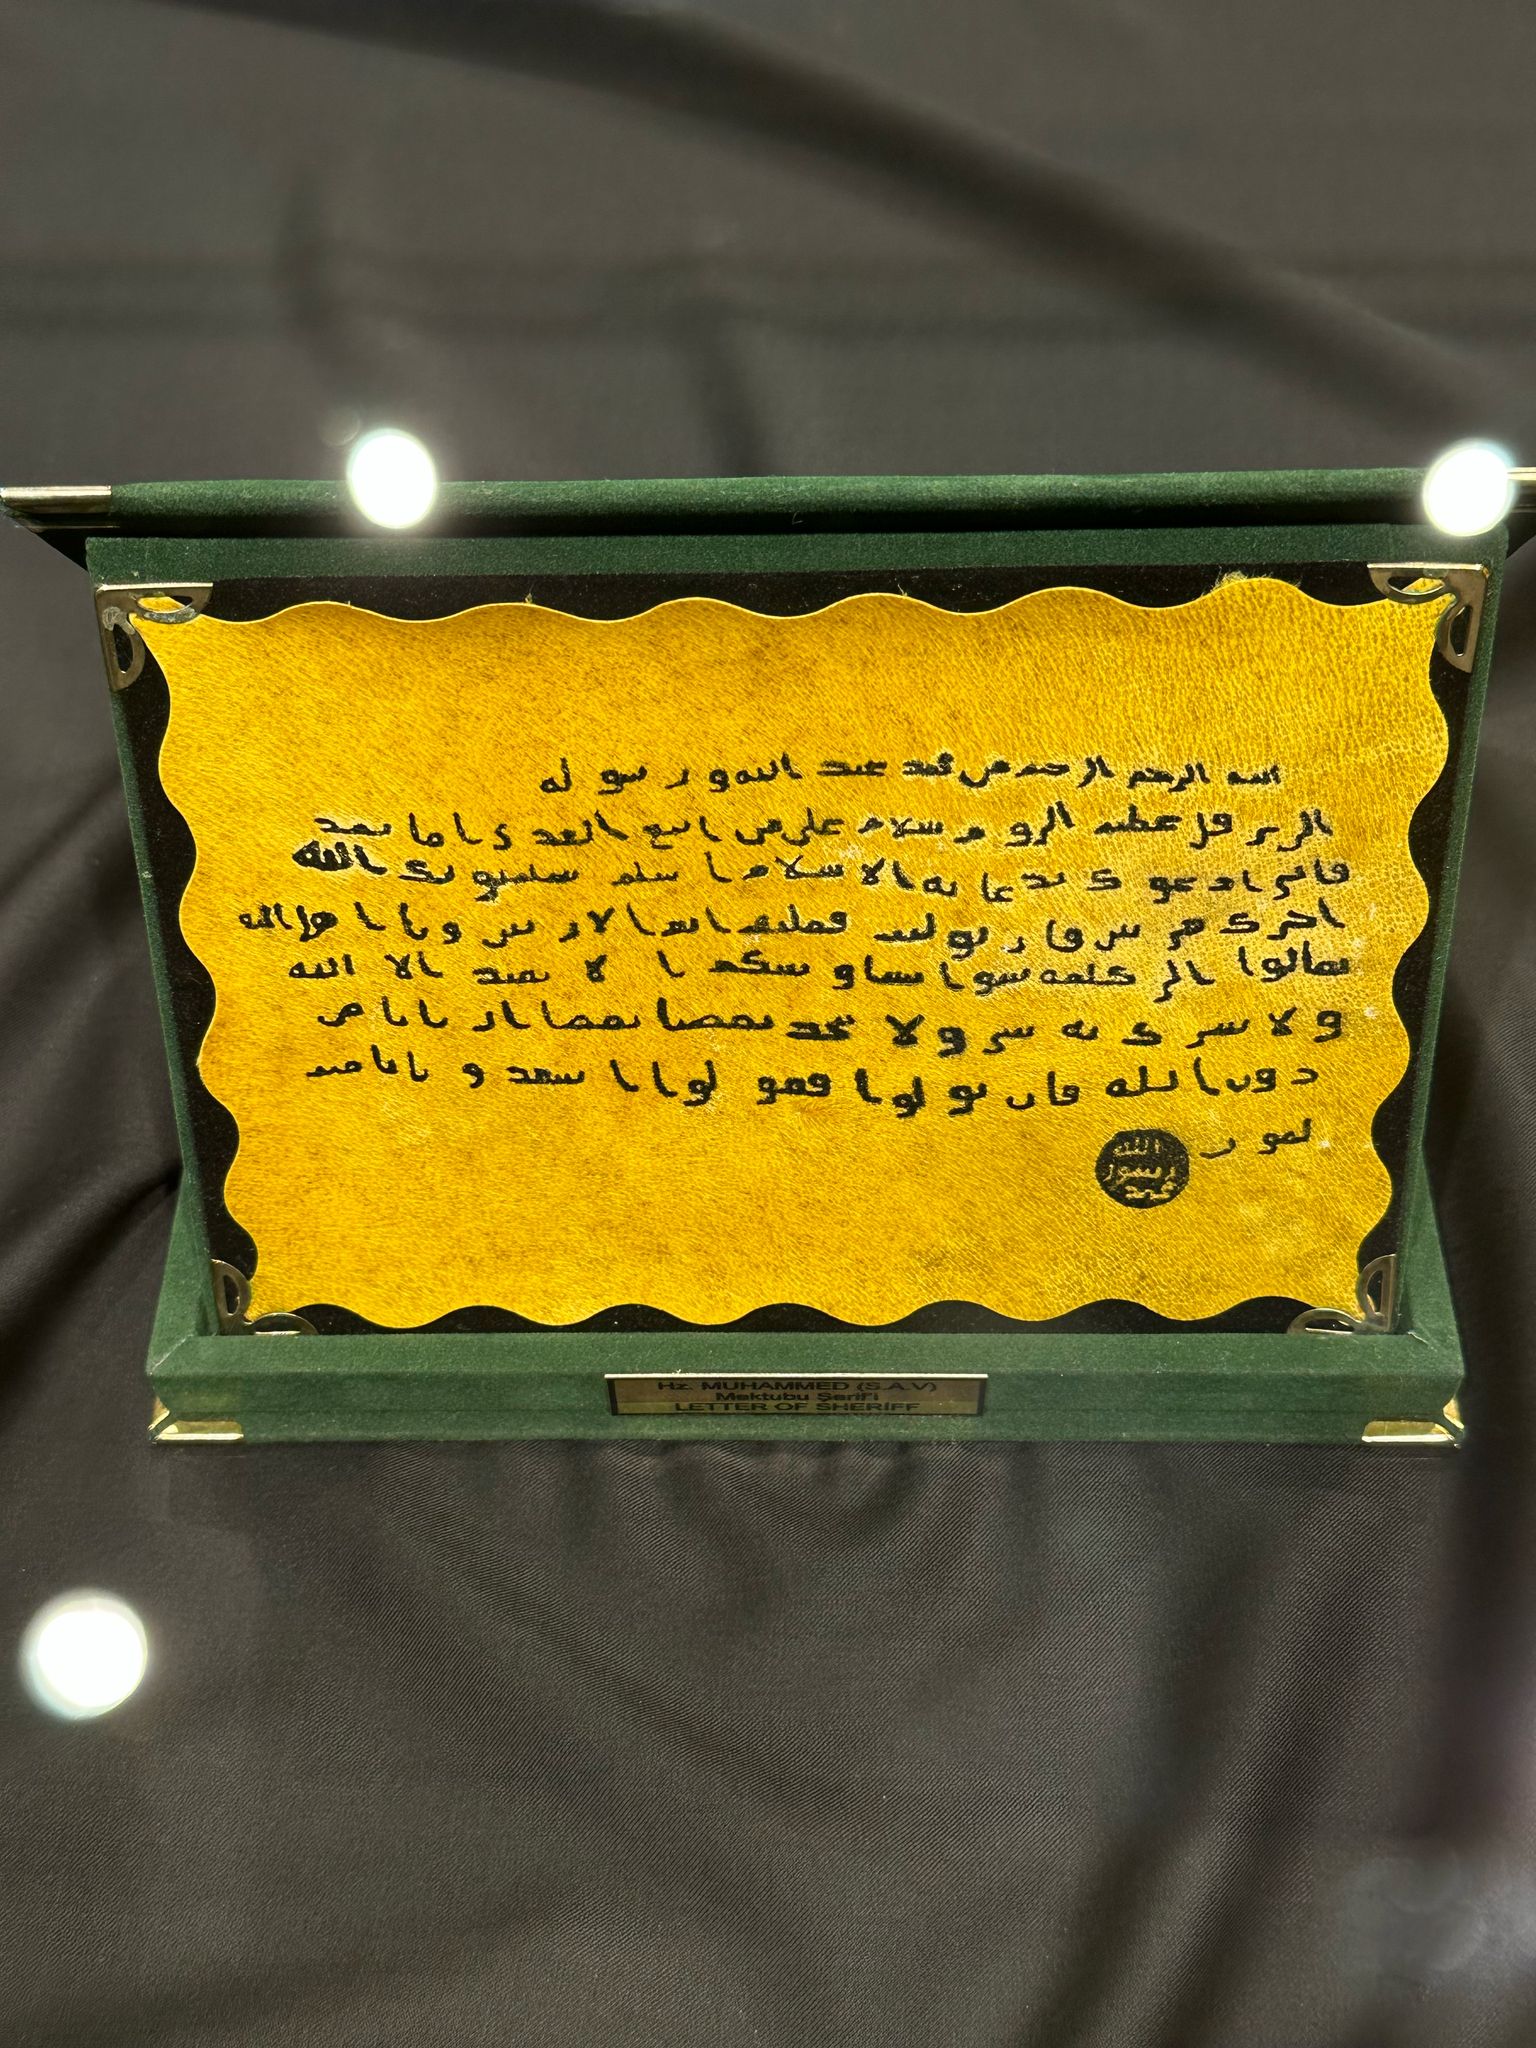 الله الرحمن الرحيم من محمد عبد الله و رسوله
الى هرقل عظيم الروم سلام على من اتبع الهدى اما بعد
فانى ادعوك بدعايه الاسلام اسلم تسلم يوتك الله
اجرك مرتين فان توليت فعليك اثم الاريسين ويا اهل الله
تعالوا الى كلمه سوا بيننا و بينكم ا لا نعبد الا الله
ولا نشرك به شى ولا يتخذ بعضنا بعضا اربابا من
دون الله فان تولوا فقولوا اشهدو بانا
الله
رسول
محمد
Hz. MUHAMMED (S.A.V)
Mektubu Şerif'i
LETTER OF SHERİFF